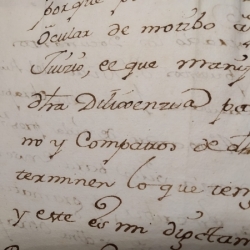 porque p
Ocular de motibo a
Juizio, el que mani
dha Diligenzia pa
no y Compattos de dh
terminen lo que ten
y este es mi dictam